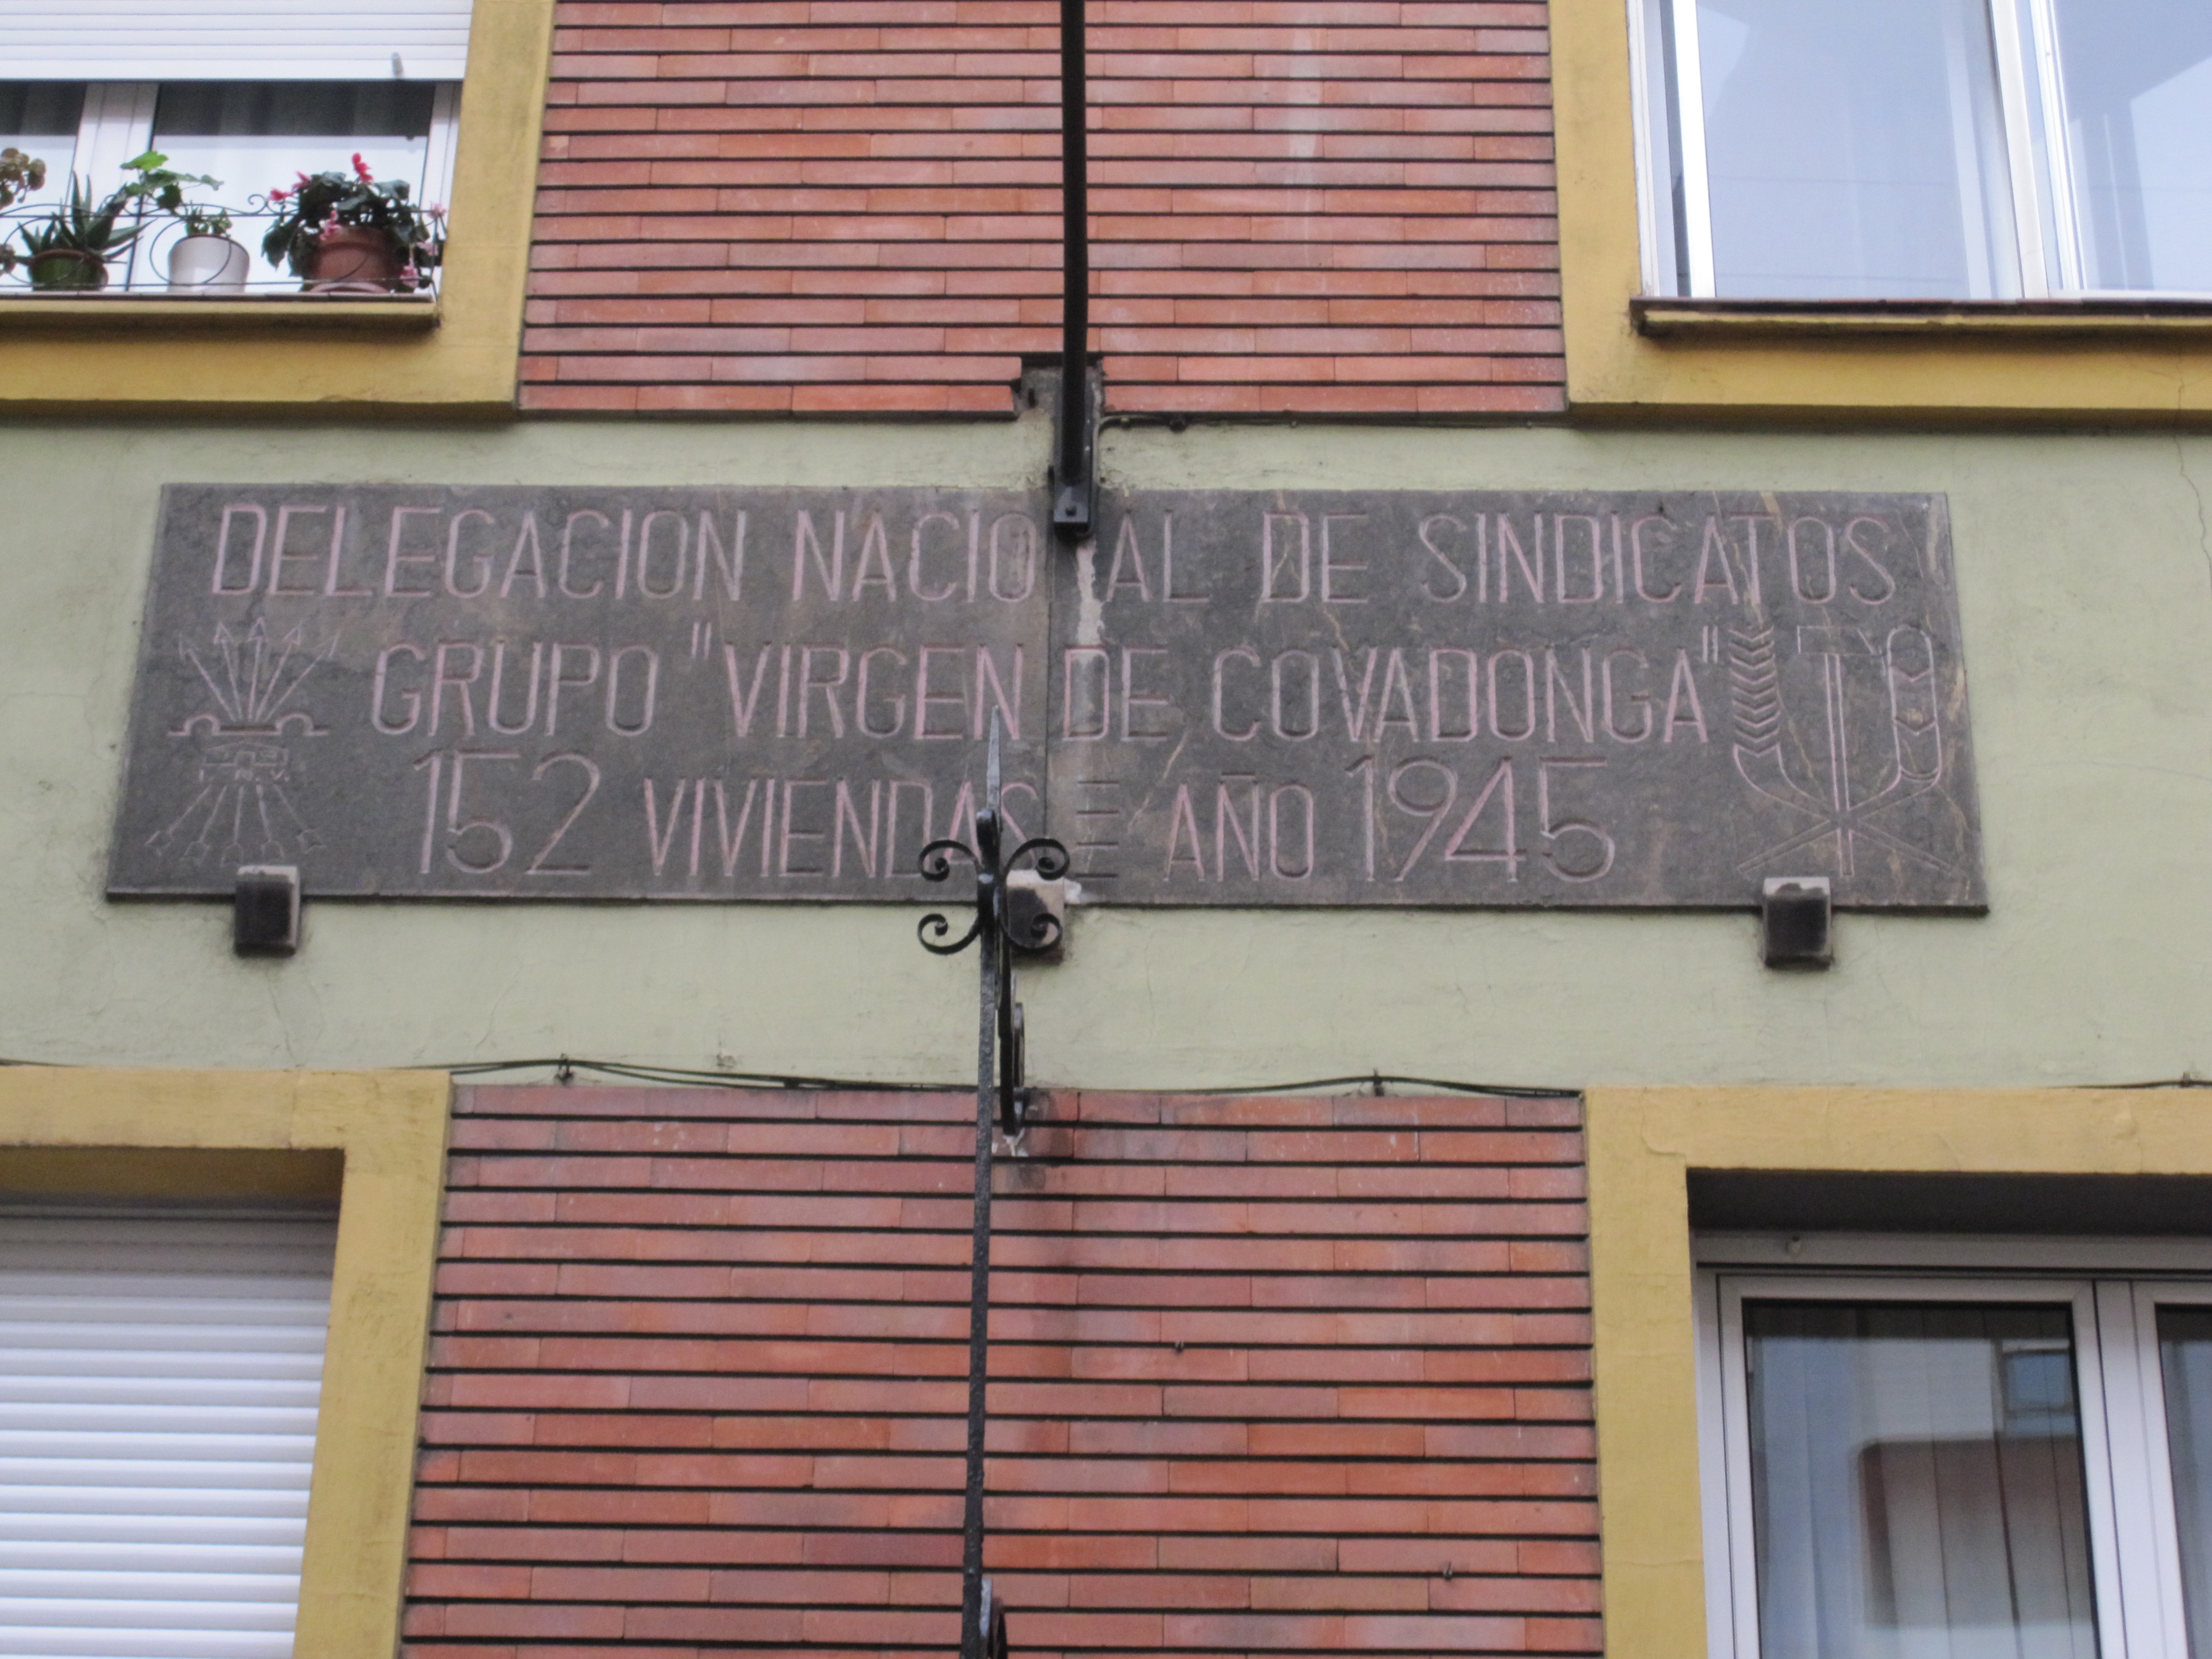 DELEGACION NACIONAL DE SINDICATOS
GRUPO "VIRGEN DE COVADONGA"
152 VIVIENDAS AÑO 1945